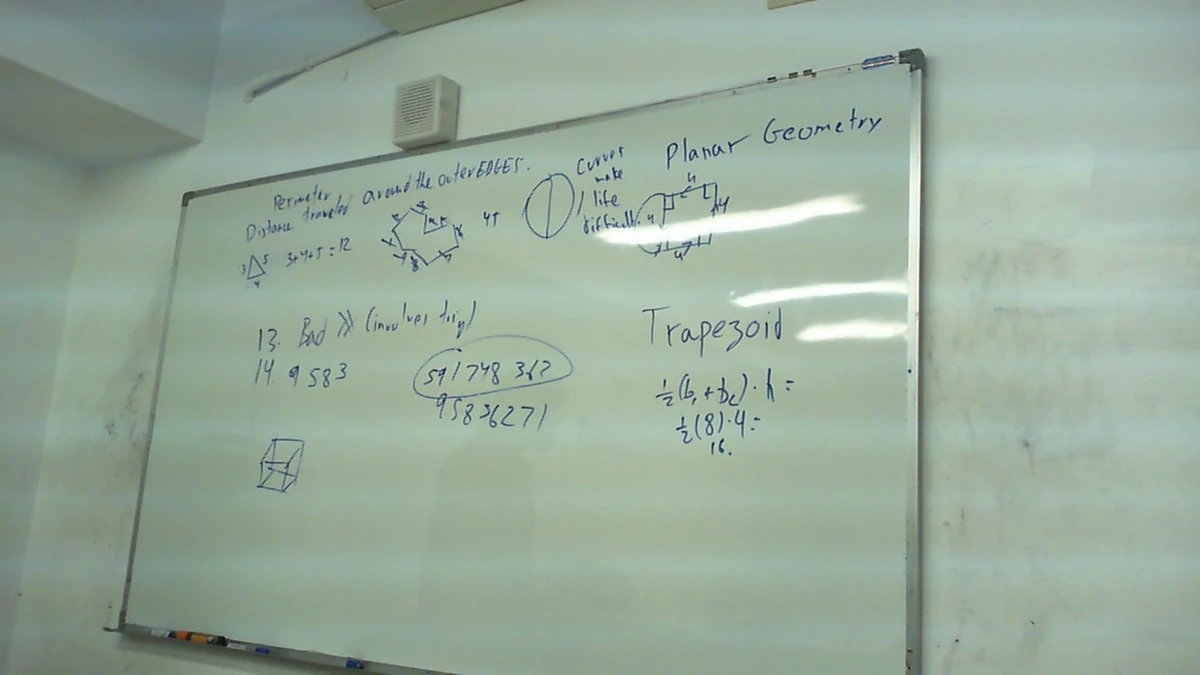 Perimeter
Distance traveled around the outer EDGES.
3 5
4
3+4+5=12
45
Curves
make
life
difficult.
Planar Geometry
4
4
4
4
13. Bad >> (involves trig)
14. 9583
591748362
95836271
Trapezoid
½(b₁+b₂)·h=
½(8)·4=
16.